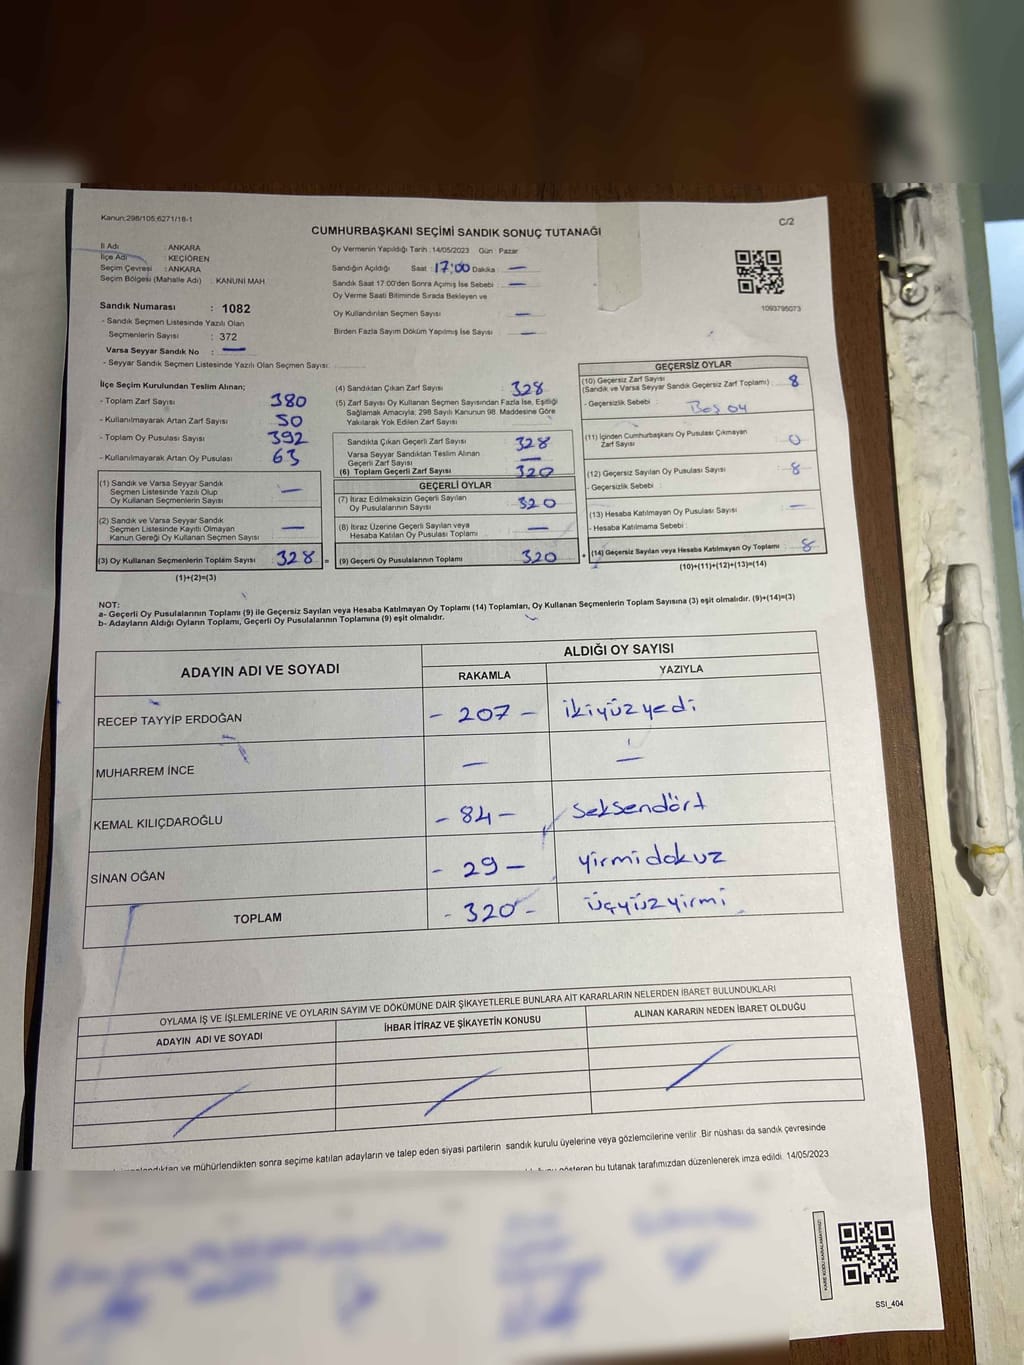 Kanun:298/105;6271/18-1
C/2
CUMHURBAŞKANI SEÇİMİ SANDIK SONUÇ TUTANAĞI
İl Adı : ANKARA
İlçe Adı : KEÇİÖREN
Seçim Çevresi : ANKARA
Seçim Bölgesi (Mahalle Adı) : KANUNİ MAH
Oy Vermenin Yapıldığı Tarih :14/05/2023 Gün : Pazar
Sandığın Açıldığı Saat : 17:00 Dakika : —
Sandık Saat 17.00'den Sonra Açılmış İse Sebebi : —
Oy Verme Saati Bitiminde Sırada Bekleyen ve
Oy Kullandırılan Seçmen Sayısı : —
Birden Fazla Sayım Döküm Yapılmış İse Sayısı : —
1093795073
Sandık Numarası : 1082
- Sandık Seçmen Listesinde Yazılı Olan
Seçmenlerin Sayısı : 372
Varsa Seyyar Sandık No : —
- Seyyar Sandık Seçmen Listesinde Yazılı Olan Seçmen Sayısı:
İlçe Seçim Kurulundan Teslim Alınan;
- Toplam Zarf Sayısı : 380
- Kullanılmayarak Artan Zarf Sayısı : 50
- Toplam Oy Pusulası Sayısı : 392
- Kullanılmayarak Artan Oy Pusulası : 63
(1) Sandık ve Varsa Seyyar Sandık
Seçmen Listesinde Yazılı Olup
Oy Kullanan Seçmenlerin Sayısı : —
(2) Sandık ve Varsa Seyyar Sandık
Seçmen Listesinde Kayıtlı Olmayan
Kanun Gereği Oy Kullanan Seçmen Sayısı : —
(3) Oy Kullanan Seçmenlerin Toplam Sayısı : 328 =
(1)+(2)=(3)
(4) Sandıktan Çıkan Zarf Sayısı : 328
(5) Zarf Sayısı Oy Kullanan Seçmen Sayısından Fazla İse, Eşitliği
Sağlamak Amacıyla; 298 Sayılı Kanunun 98. Maddesine Göre
Yakılarak Yok Edilen Zarf Sayısı :
Sandıkta Çıkan Geçerli Zarf Sayısı : 328
Varsa Seyyar Sandıktan Teslim Alınan
Geçerli Zarf Sayısı : —
(6) Toplam Geçerli Zarf Sayısı : 320
GEÇERLİ OYLAR
(7) İtiraz Edilmeksizin Geçerli Sayılan
Oy Pusulalarının Sayısı : 320
(8) İtiraz Üzerine Geçerli Sayılan veya
Hesaba Katılan Oy Pusulası Toplamı : —
(9) Geçerli Oy Pusulalarının Toplamı : 320 +
GEÇERSİZ OYLAR
(10) Geçersiz Zarf Sayısı
(Sandık ve Varsa Seyyar Sandık Geçersiz Zarf Toplamı) : 8
- Geçersizlik Sebebi : Boş oy
(11) İçinden Cumhurbaşkanı Oy Pusulası Çıkmayan
Zarf Sayısı : 0
(12) Geçersiz Sayılan Oy Pusulası Sayısı : 8
- Geçersizlik Sebebi :
(13) Hesaba Katılmayan Oy Pusulası Sayısı : —
- Hesaba Katılmama Sebebi :
(14) Geçersiz Sayılan veya Hesaba Katılmayan Oy Toplamı : 8
(10)+(11)+(12)+(13)=(14)
NOT:
a- Geçerli Oy Pusulalarının Toplamı (9) ile Geçersiz Sayılan veya Hesaba Katılmayan Oy Toplamı (14) Toplamları, Oy Kullanan Seçmenlerin Toplam Sayısına (3) eşit olmalıdır. (9)+(14)=(3)
b- Adayların Aldığı Oyların Toplamı, Geçerli Oy Pusulalarının Toplamına (9) eşit olmalıdır.
ADAYIN ADI VE SOYADI
ALDIĞI OY SAYISI
RAKAMLA YAZIYLA
RECEP TAYYİP ERDOĞAN - 207 - ikiyüzyedi
MUHARREM İNCE — —
KEMAL KILIÇDAROĞLU - 84 - Seksendört
SİNAN OĞAN - 29 - yirmidokuz
TOPLAM - 320 - üçyüzyirmi
OYLAMA İŞ VE İŞLEMLERİNE VE OYLARIN SAYIM VE DÖKÜMÜNE DAİR ŞİKAYETLERLE BUNLARA AİT KARARLARIN NELERDEN İBARET BULUNDUKLARI
ADAYIN ADI VE SOYADI İHBAR İTİRAZ VE ŞİKAYETİN KONUSU ALINAN KARARIN NEDEN İBARET OLDUĞU
ve mühürlendikten sonra seçime katılan adayların ve talep eden siyasi partilerin sandık kurulu üyelerine veya gözlemcilerine verilir. Bir nüshası da sandık çevresinde
gösteren bu tutanak tarafımızdan düzenlenerek imza edildi. 14/05/2023
KARE KODU KARALAMAYINIZ!
SSI_404